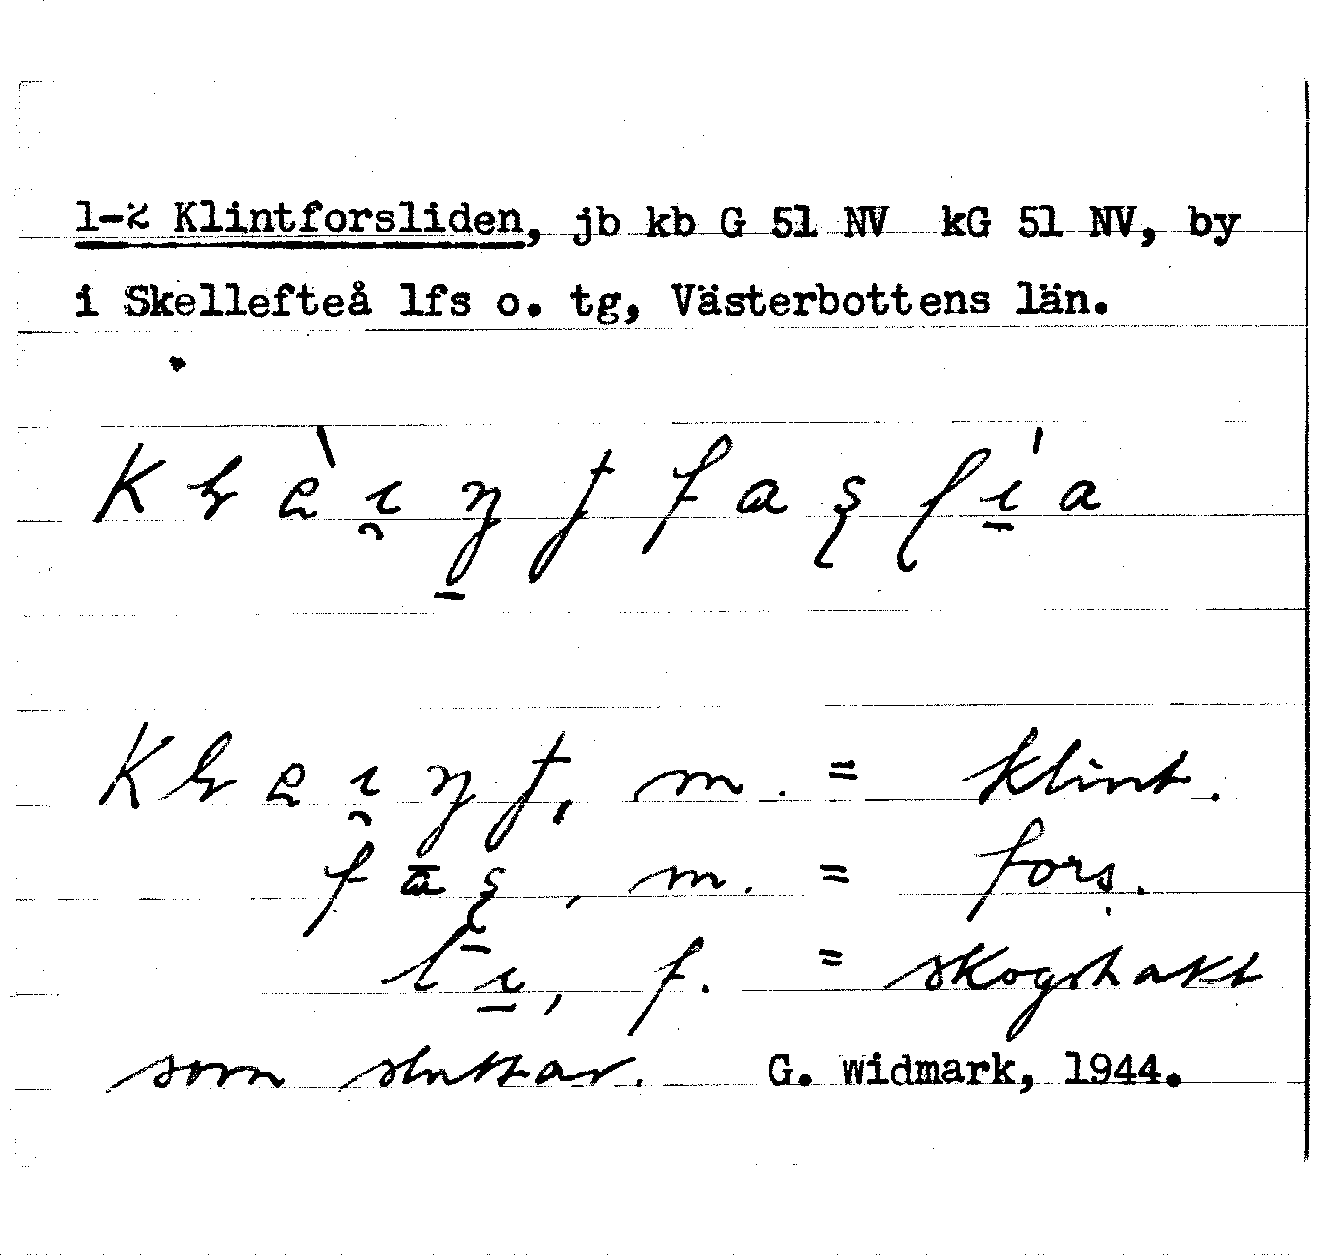 1-2 Klintforsliden, jb kb G 51 NV kG 51 NV, by
i Skellefteå lfs o. tg, Västerbottens län.
m. = klint.
m. = fors.
f. = skogstrakt
som sluttar. G. Widmark, 1944.